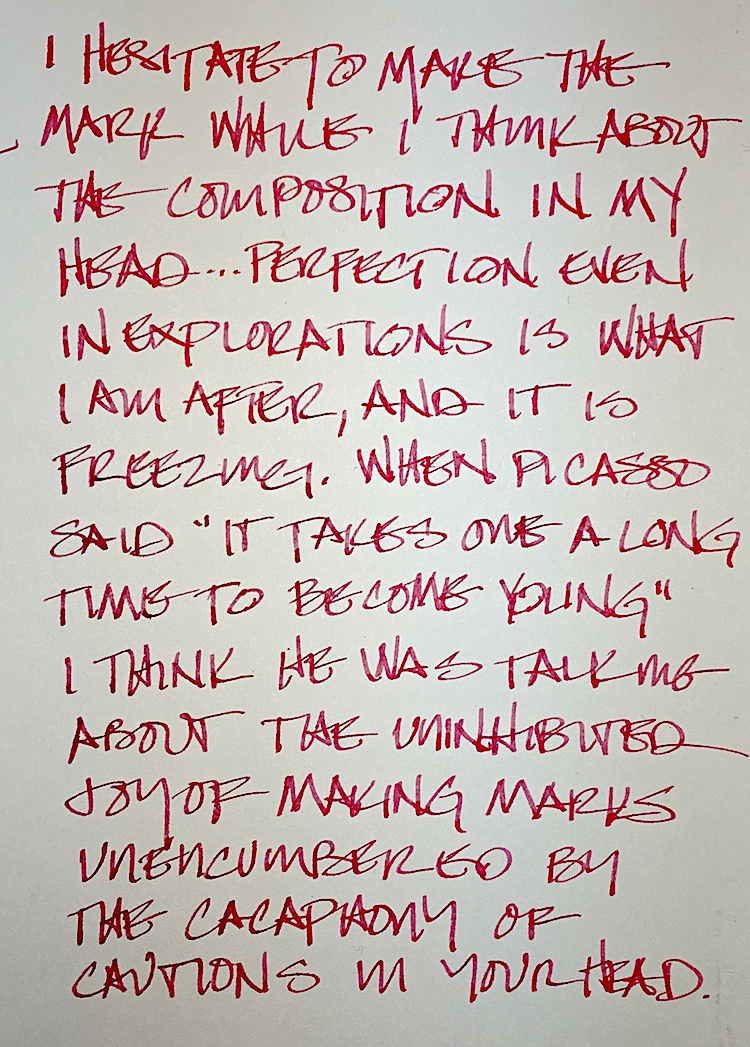 I HESITATE TO MAKE THE
MARK WHILE I THINK ABOUT
THE COMPOSITION IN MY
HEAD...PERFECTION EVEN
IN EXPLORATIONS IS WHAT
I AM AFTER, AND IT IS
FREEZING. WHEN PICASSO
SAID "IT TAKES ONE A LONG
TIME TO BECOME YOUNG"
I THINK HE WAS TALKING
ABOUT THE UNINHIBITED
JOY OF MAKING MARKS
UNENCUMBERED BY
THE CACAPHONY OF
CAUTIONS IN YOUR HEAD.